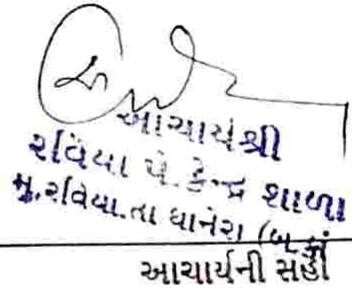 આચાર્યશ્રી
રવિયા પે. કેન્દ્ર શાળા
મુ.રવિયા.તા ધાનેરા (બ.કાં
આચાર્યની સહી